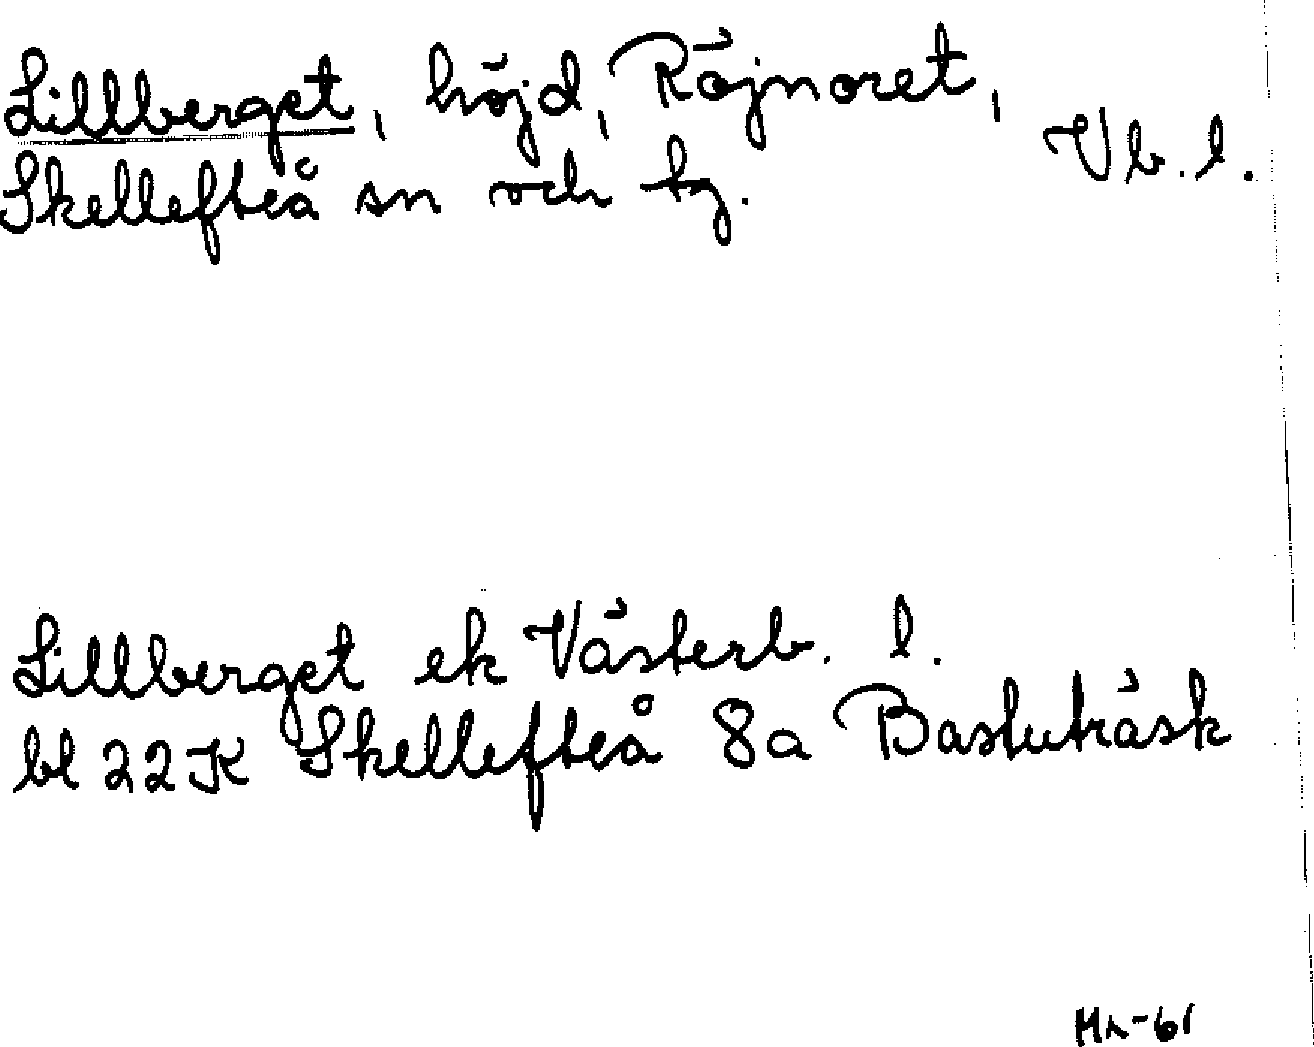 Lillberget, höjd, Röjnoret,
Vb. l.
Skellefteå sn och tg.
Lillberget ek Västerb. l.
bl 22K Skellefteå 8a Bastuträsk